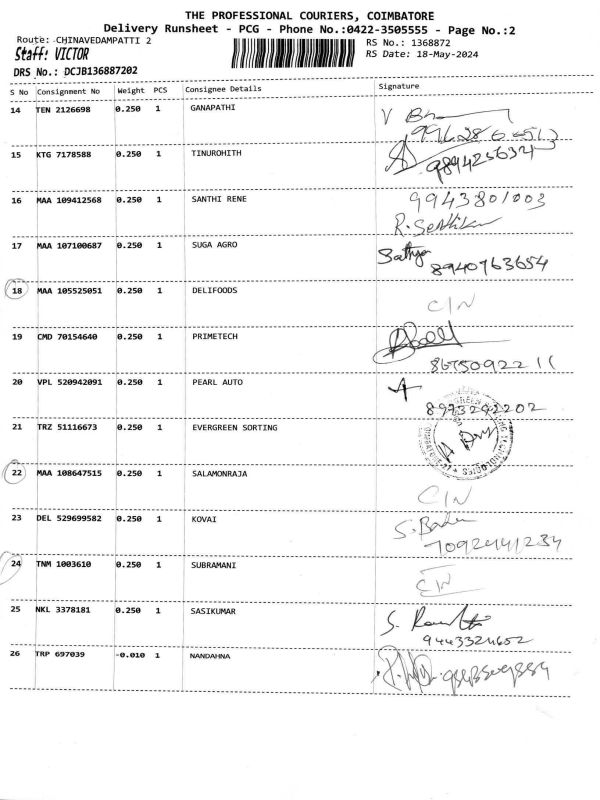 THE PROFESSIONAL COURIERS, COIMBATORE
Delivery Runsheet - PCG - Phone No.:0422-3505555 - Page No.:2
Route: CHINAVEDAMPATTI 2
RS No.: 1368872
Staff: VICTOR
RS Date: 18-May-2024
DRS No.: DCJB136887202
S No Consignment No Weight PCS Consignee Details Signature
14 TEN 2126698 0.250 1 GANAPATHI
15 KTG 7178588 0.250 1 TINUROHITH
9894256324
16 MAA 109412568 0.250 1 SANTHI RENE 9943801003
17 MAA 107100687 0.250 1 SUGA AGRO Sathya
8940763654
18 MAA 105525051 0.250 1 DELIFOODS
C/N
19 CMD 70154640 0.250 1 PRIMETECH
20 VPL 520942091 0.250 1 PEARL AUTO
8973292202
21 TRZ 51116673 0.250 1 EVERGREEN SORTING
22 MAA 108647515 0.250 1 SALAMONRAJA
C/N
23 DEL 529699582 0.250 1 KOVAI
24 TNM 1003610 0.250 1 SUBRAMANI
C/N
25 NKL 3378181 0.250 1 SASIKUMAR
9443324652
26 TRP 697039 -0.010 1 NANDAHNA